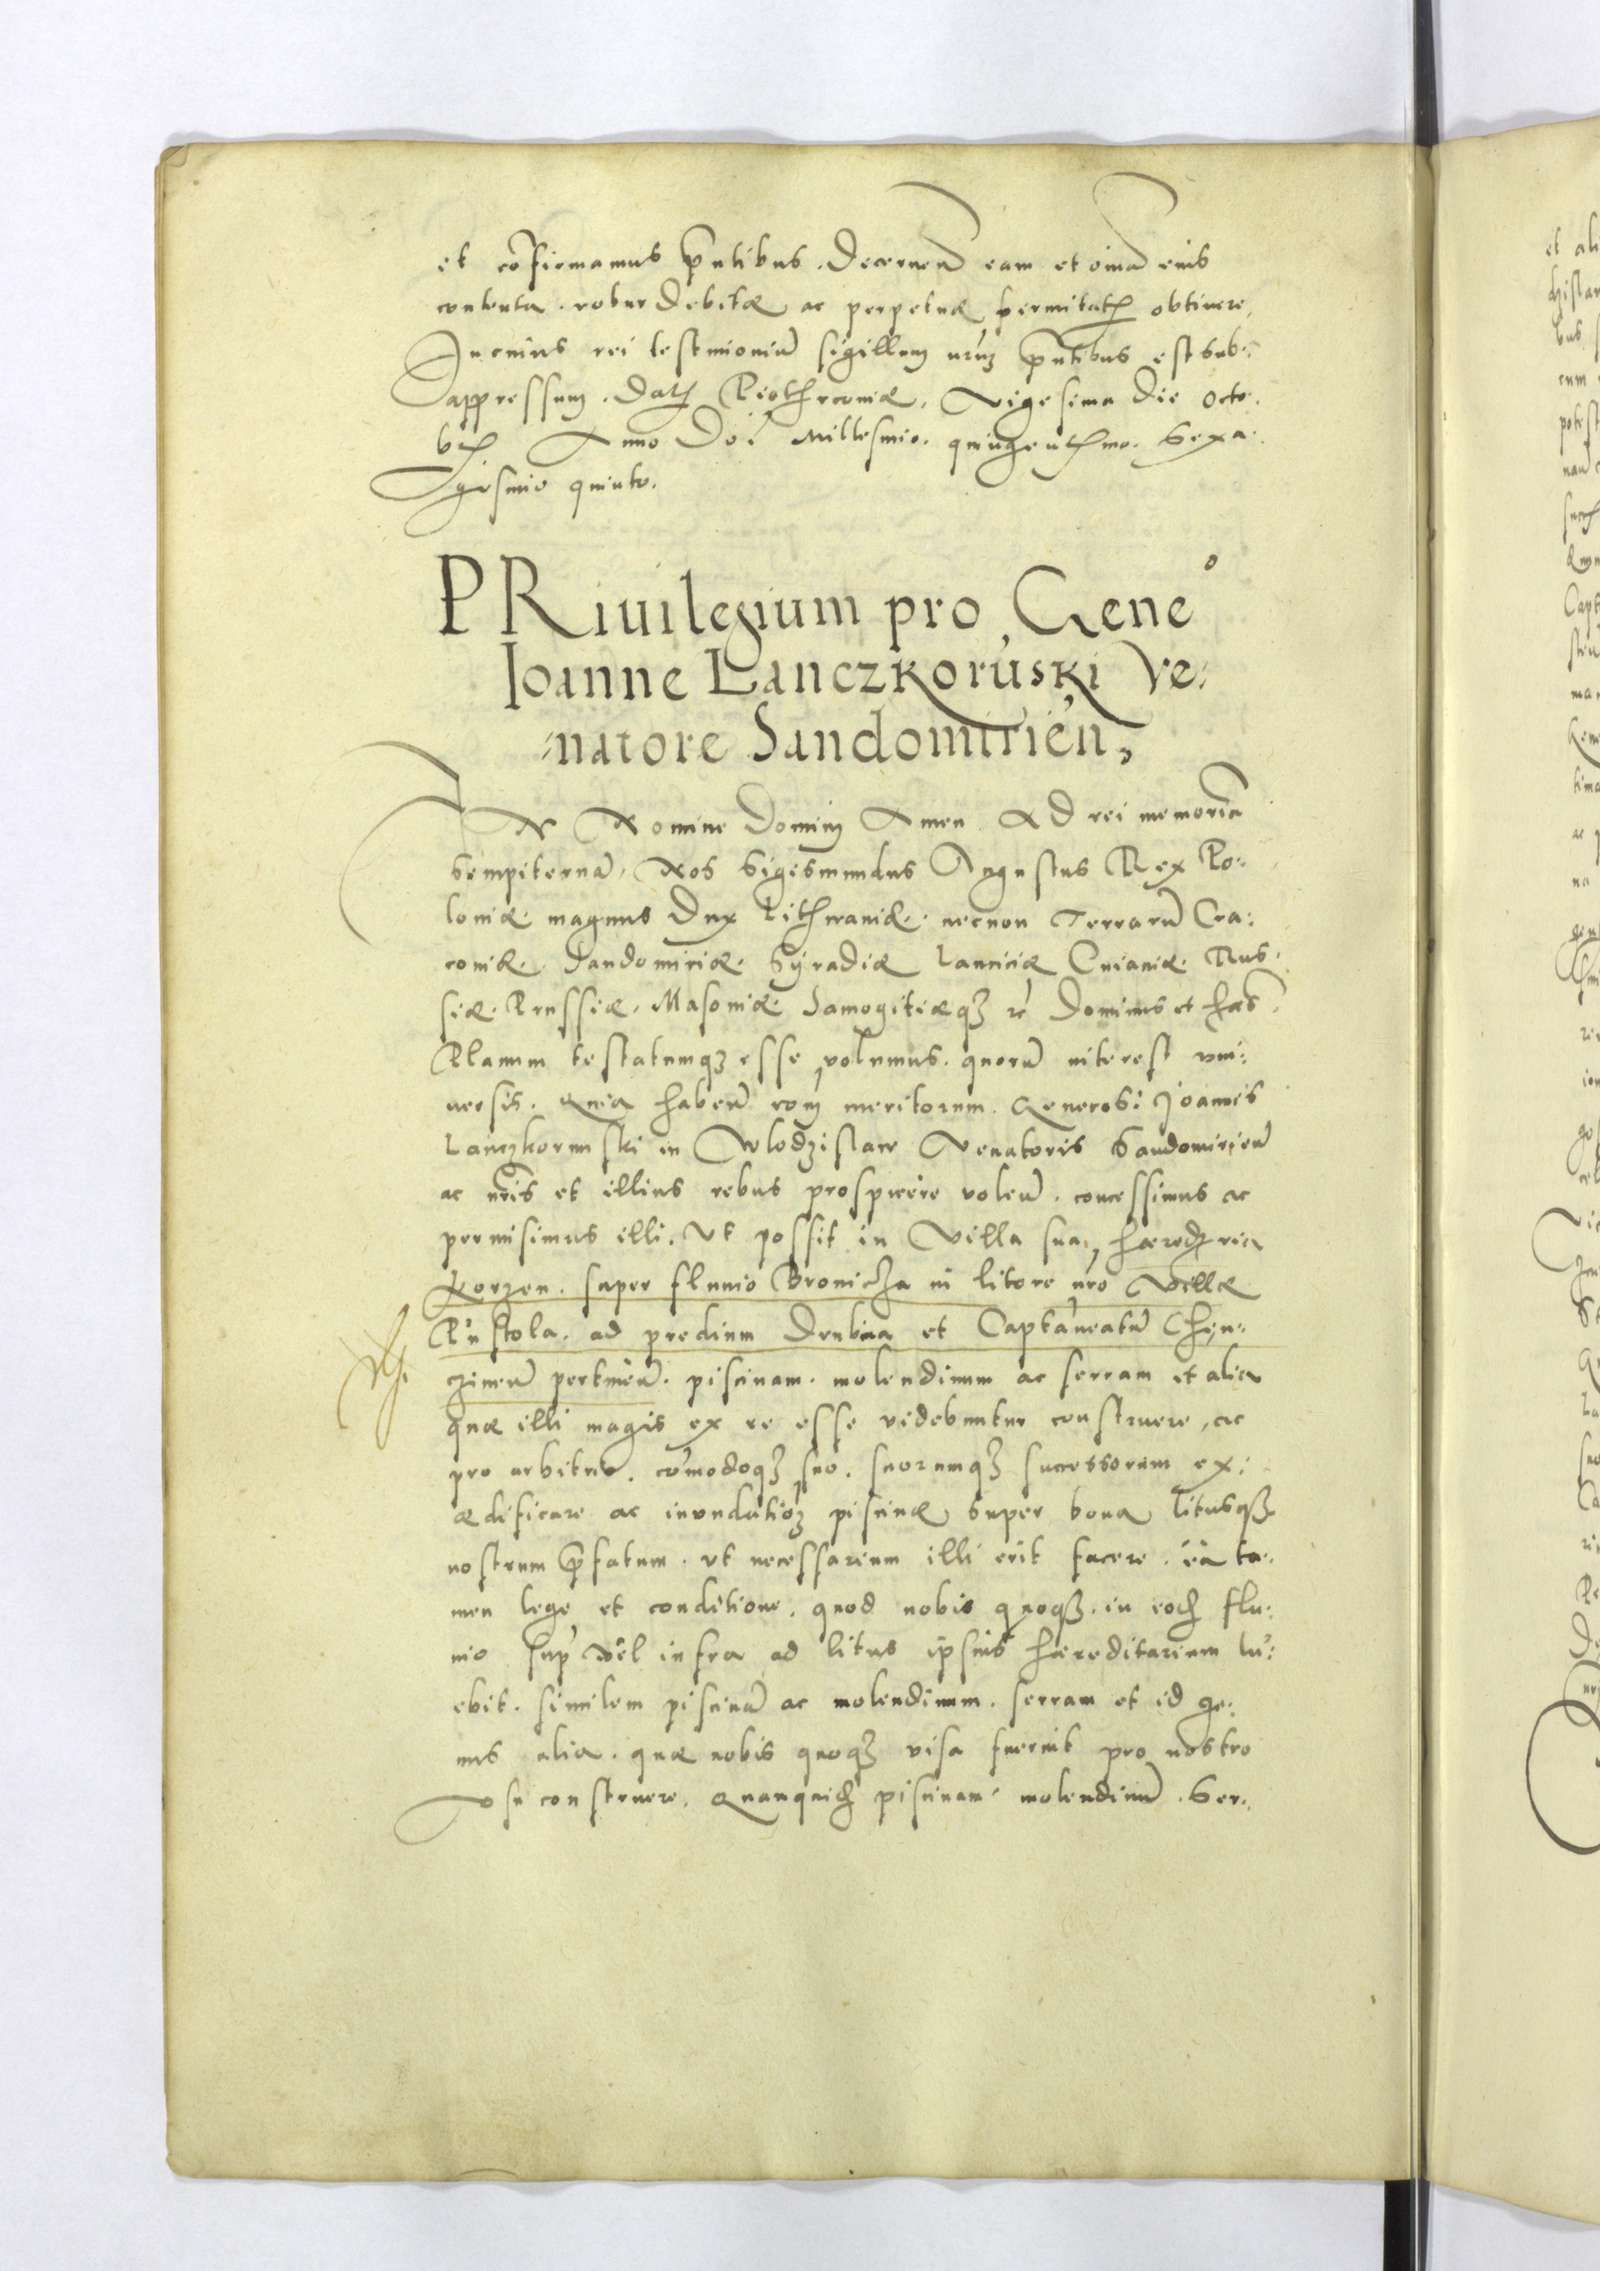 et cōfirmamus p̄ntibus. Decernen̄ eam et om̄ia eius
contenta. robur debitæ ac perpetuæ firmitatis obtinere,
In cuius rei testimoniū sigillum nr̄um p̄ntibus est sub:
appressum. Dat Piothrcouiæ, Vigesima Die Octo:
br Anno Doī Millesimo. quingentesimo. Sexa:
gesimo quinto.
PRiuilegium pro Gene°
Ioanne Lanczkoruski Ve:
:natore Sandomirien,
IN Nomine Domini Amen Ad rei memoriā
sempiternā, Nos Sigismundus Augustus Rex Po:
loniæ. magnus Dux Lithuaniæ. necnon Terrarū Cra:
couiæ. Sandomiriæ. Syradiæ Lanciciæ Cuiauiæ. Rus:
siæ. Prussiæ. Masouiæ. Samogitiæqꝫ ꝛc Dominus et hæs
Planum testatumqꝫ esse volumus. quorū interest vni:
uersis. Quia haben̄ rōm meritorum. Generosi Joannis
Lanczkorunski in Wlodzislaw Venatoris Sandomirien̄
ac nr̄is et illius rebus prospicere volen̄. concessimus ac
permisimus illi. Vt possit in Villa sua, hæredria
Korzen. super fluuio Bronicza in litore nr̄o Villæ
Rustola. ad predium Drubna et Captaneatū Chen:
czinen̄ pertinen̄. piscinam. molendinum ac serram et alia
quæ illi magis ex re esse videbuntur construere, ac
pro arbitrio. cōmodoqꝫ suo. suorumqꝫ successorum ex:
ædificare ac inundatiōꝫ piscinæ super bona litusqꝫ
nostrum p̄fatum. vt necessarium illi erit facere. ea ta:
men lege et conditione. quod nobis quoqꝫ. in eod flu:
uio sup vel infra ad litus ipsius hæreditarium li:
ebit. similem piscinā ac molendinum. serram et id ge:
nus alia. quæ nobis quoqꝫ visa fuerint pro nostro
Vsu construere. Quamquid piscinam molendinū. Ser: